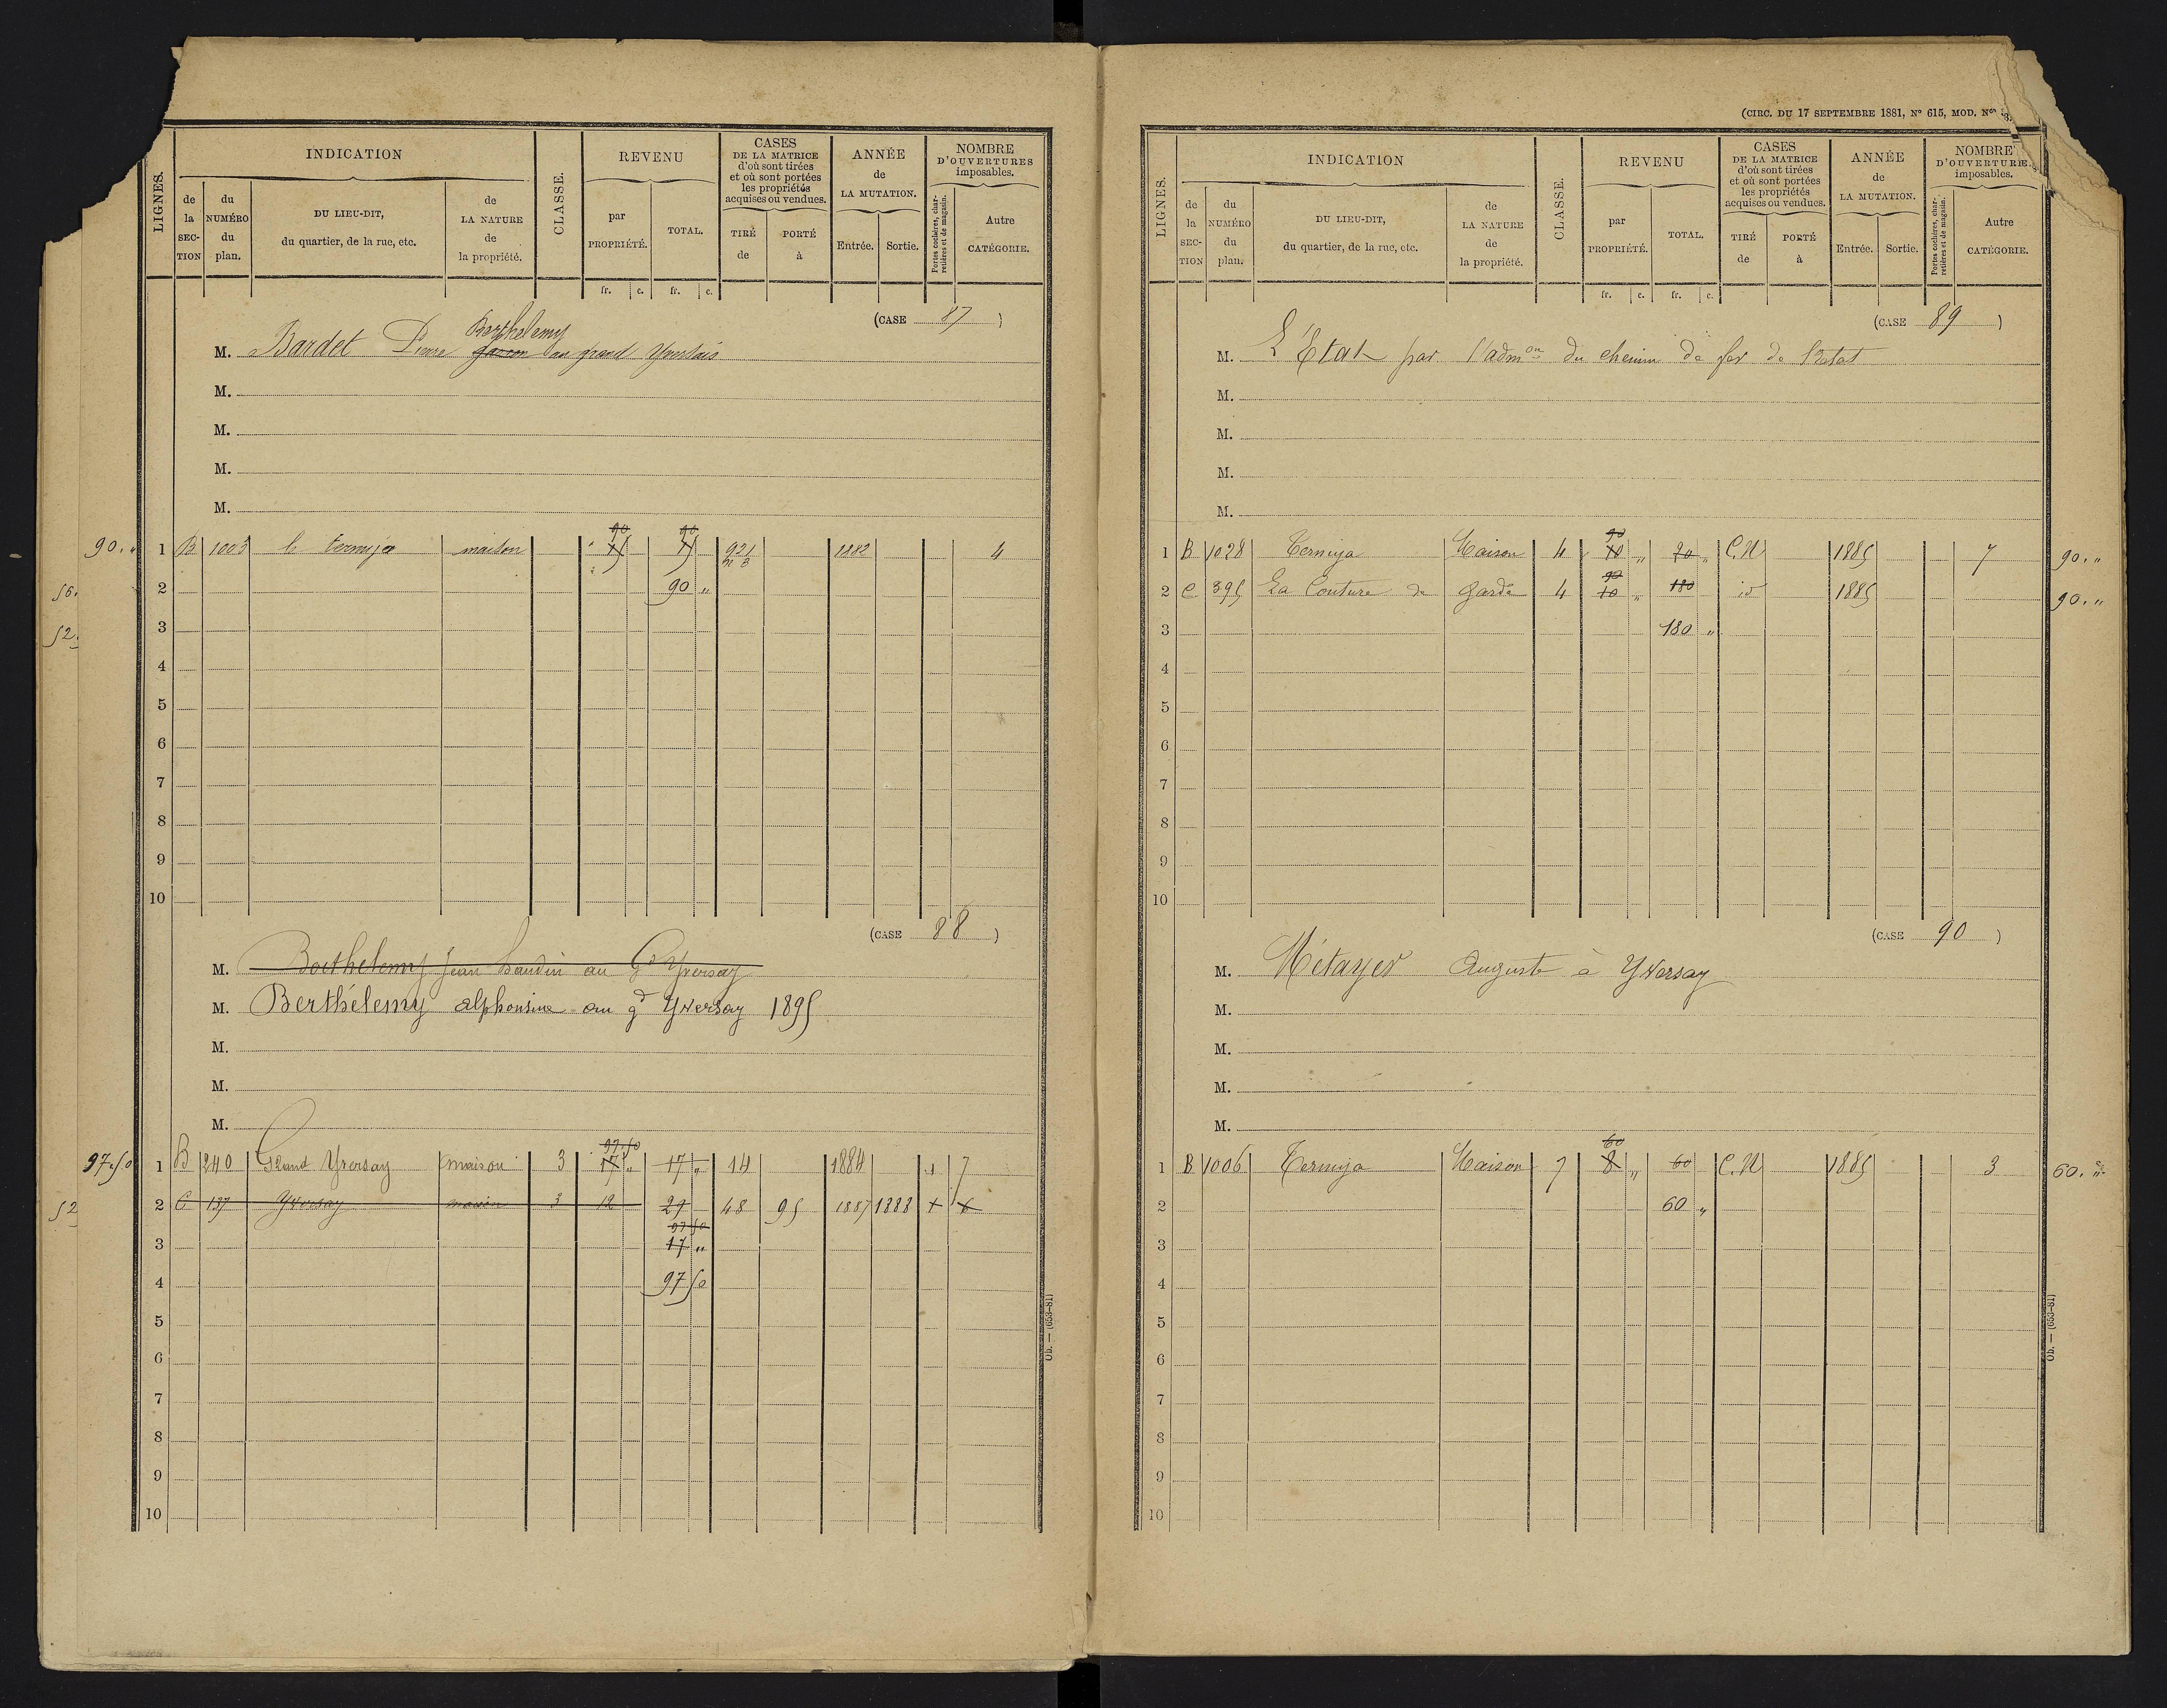 (CIRC. DU 17 SEPTEMBRE 1881, N° 615, MOD. Nos
LIGNES.
INDICATION
de la SECTION
du NUMÉRO du plan.
DU LIEU-DIT, du quartier, de la rue, etc.
de LA NATURE de la propriété.
CLASSE.
REVENU
par PROPRIÉTÉ.
TOTAL.
CASES DE LA MATRICE d'où sont tirées et où sont portées les propriétés acquises ou vendues.
TIRÉ de
PORTÉ à
ANNÉE de LA MUTATION.
Entrée.
Sortie.
NOMBRE D'OUVERTURES imposables.
Portes cochères, charretières et de magasin.
Autre CATÉGORIE.
fr. c. fr. c.
(CASE 87)
Berthelemy
M. Bardet Pierre garcon au grand Yversais
M.
M.
M.
M.
90 90
90. " 1 B 1003 le Ternuja maison 921 1882 4
56. 2 90 "
52. 3
4
5
6
7
8
9
10
(CASE 88)
M. Berthelemy Jean au Gd Yversay
M. Berthélemy alphonsine au gd Yversay 1895
M.
M.
M.
97.50
97.50 1 B 240 Grand Yversay maison 3 17 " 17 " 14 1884 1 7
52 2 C 137 Yversay maison 3 12 29 48 95 1887 1888 + 6
97 50
3 17 "
4 97 50
5
6
7
8
9
10
Ob. — (653-81)
LIGNES.
INDICATION
de la SECTION
du NUMÉRO du plan.
DU LIEU-DIT, du quartier, de la rue, etc.
de LA NATURE de la propriété.
CLASSE.
REVENU
par PROPRIÉTÉ.
TOTAL.
CASES DE LA MATRICE d'où sont tirées et où sont portées les propriétés acquises ou vendues.
TIRÉ de
PORTÉ à
ANNÉE de LA MUTATION.
Entrée.
Sortie.
NOMBRE D'OUVERTURES imposables.
Portes cochères, charretières et de magasin.
Autre CATÉGORIE.
fr. c. fr. c.
(CASE 89)
M. L'État par l'admon du chemin de fer de l'état
M.
M.
M.
M.
90
1 B 1028 Ternuja Maison 4 10 " 20 " C.N 1885 7 90. "
90
2 C 395 La Couture de garde 4 10 " 180 id 1885 90. "
3 180 "
4
5
6
7
8
9
10
(CASE 90)
M. Métayer Auguste à Yversay
M.
M.
M.
M.
60
1 B 1006 Ternuja Maison 7 8 " 60 C.N 1885 3 60. "
2 60 "
3
4
5
6
7
8
9
10
Ob. — (653-81)